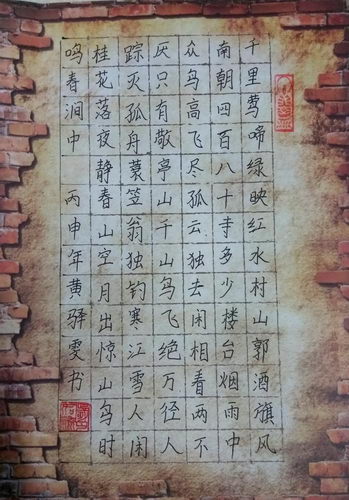 千里莺啼绿映红水村山郭酒旗风
南朝四百八十寺多少楼台烟雨中
众鸟高飞尽孤云独去闲相看两不
厌只有敬亭山千山鸟飞绝万径人
踪灭孤舟蓑笠翁独钓寒江雪人闲
桂花落夜静春山空月出惊山鸟时
鸣春涧中 丙申年黄驿雯书